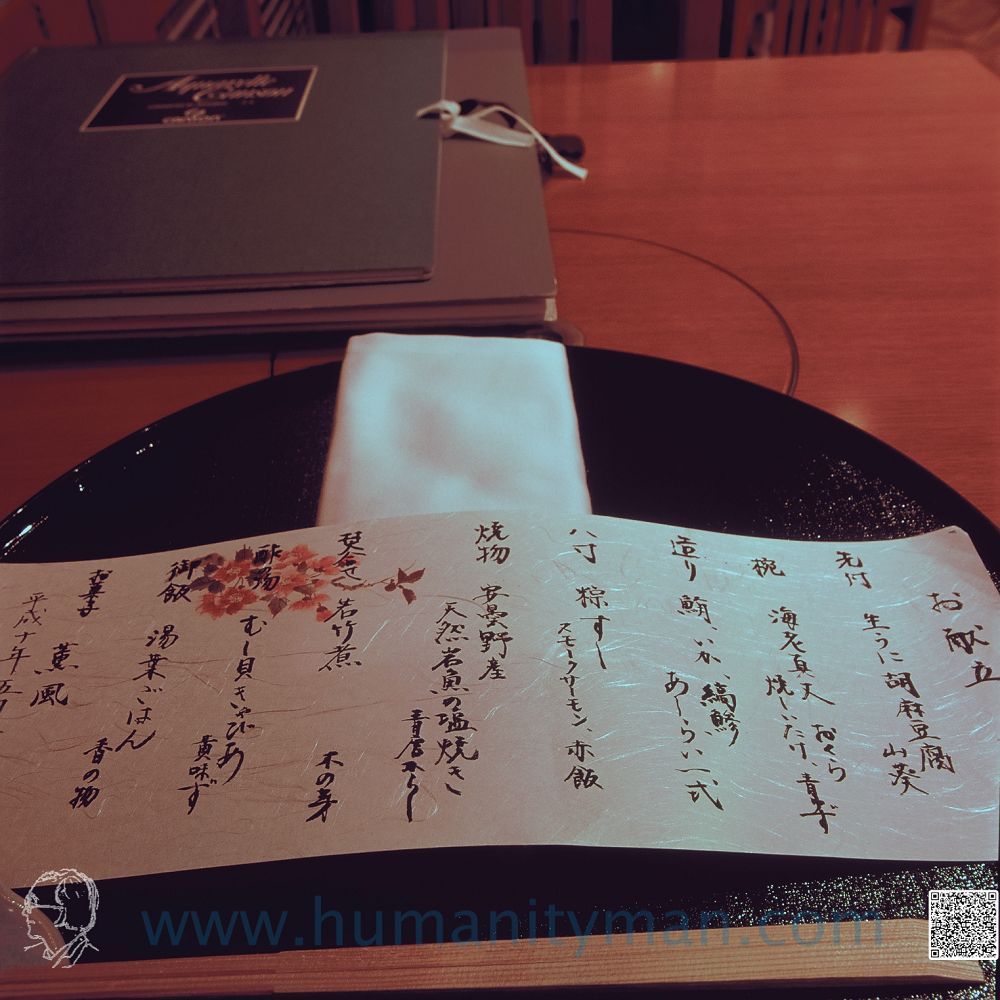 お献立
先付
生うに胡麻豆腐
山葵
椀
海老真丈 おくら
焼しいたけ、青ゆず
造り
鮪、いか、縞鯵
あしらい一式
八寸
粽すし
スモークサーモン、赤飯
焼物
安曇野産
天然岩魚の塩焼き
青唐からし
焚合せ
若竹煮
木の芽
酢物
むし貝きゃびあ
黄味ず
御飯
湯葉ごはん
香の物
お菓子
薫風
平成十年五
Aquarelle
Canson
CANSON
www.humanityman.com